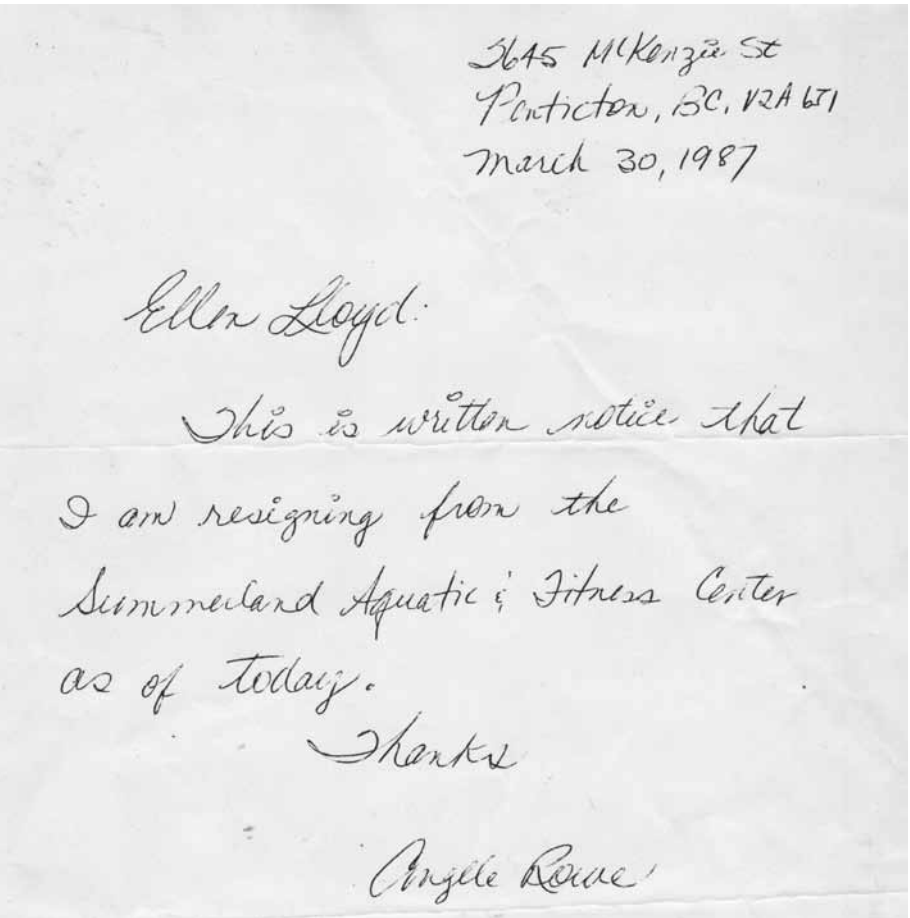 2645 McKenzie St
Penticton, BC, V2A 6J1
March 30, 1987
Ellen Lloyd:
This is written notice that
I am resigning from the
Summerland Aquatic & Fitness Center
as of today.
Thanks
Angele Rowe